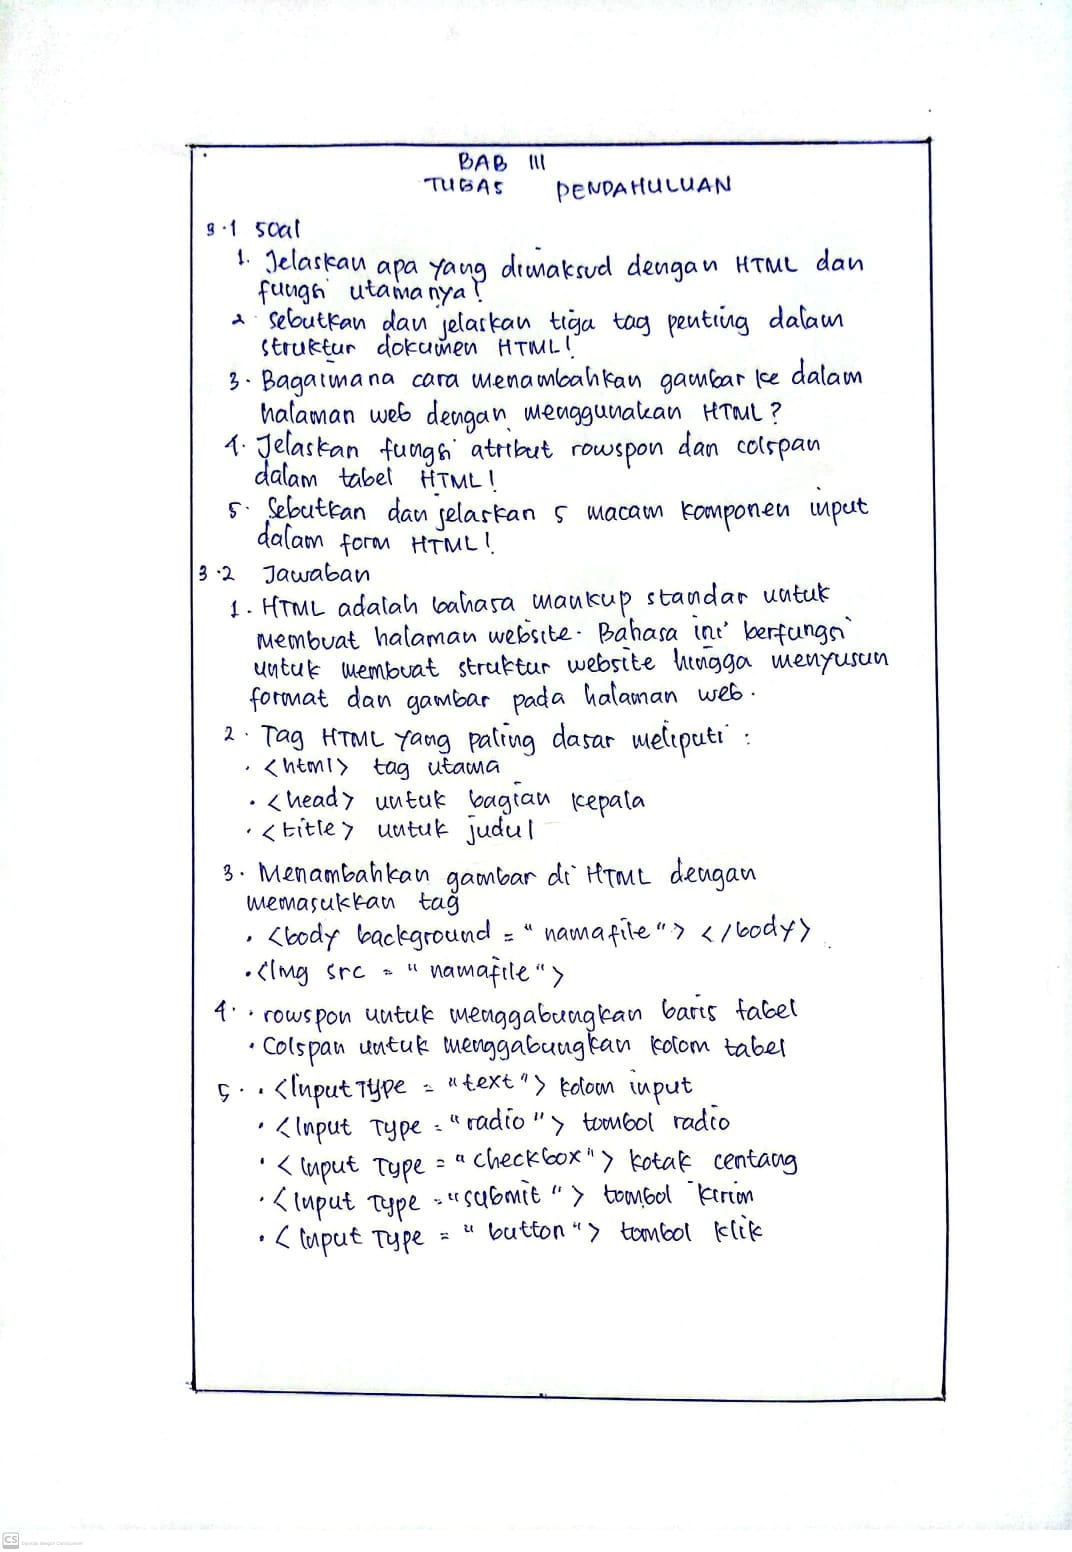 BAB III
TUGAS PENDAHULUAN
3.1 Soal
1. Jelaskan apa yang dimaksud dengan HTML dan
fungsi utamanya!
2. Sebutkan dan jelaskan tiga tag penting dalam
struktur dokumen HTML!
3. Bagaimana cara menambahkan gambar ke dalam
halaman web dengan menggunakan HTML?
4. Jelaskan fungsi atribut rowspon dan colspan
dalam tabel HTML!
5. Sebutkan dan jelaskan 5 macam komponen input
dalam form HTML!
3.2 Jawaban
1. HTML adalah bahasa maukup standar untuk
membuat halaman website. Bahasa ini berfungsi
untuk membuat struktur website hingga menyusun
format dan gambar pada halaman web.
2. Tag HTML yang paling dasar meliputi :
• <html> tag utama
• <head> untuk bagian kepala
• <title> untuk judul
3. Menambahkan gambar di HTML dengan
memasukkan tag
• <body background = "namafile"> </body>
• <Img src = "namafile">
4. • rowspon untuk menggabungkan baris tabel
• Colspan untuk menggabungkan kolom tabel
5. • <Input Type = "text"> kolom input
• <Input Type = "radio"> tombol radio
• <Input Type = "checkbox"> kotak centang
• <Input Type = "submit"> tombol kirim
• <Input Type = "button"> tombol klik
CS